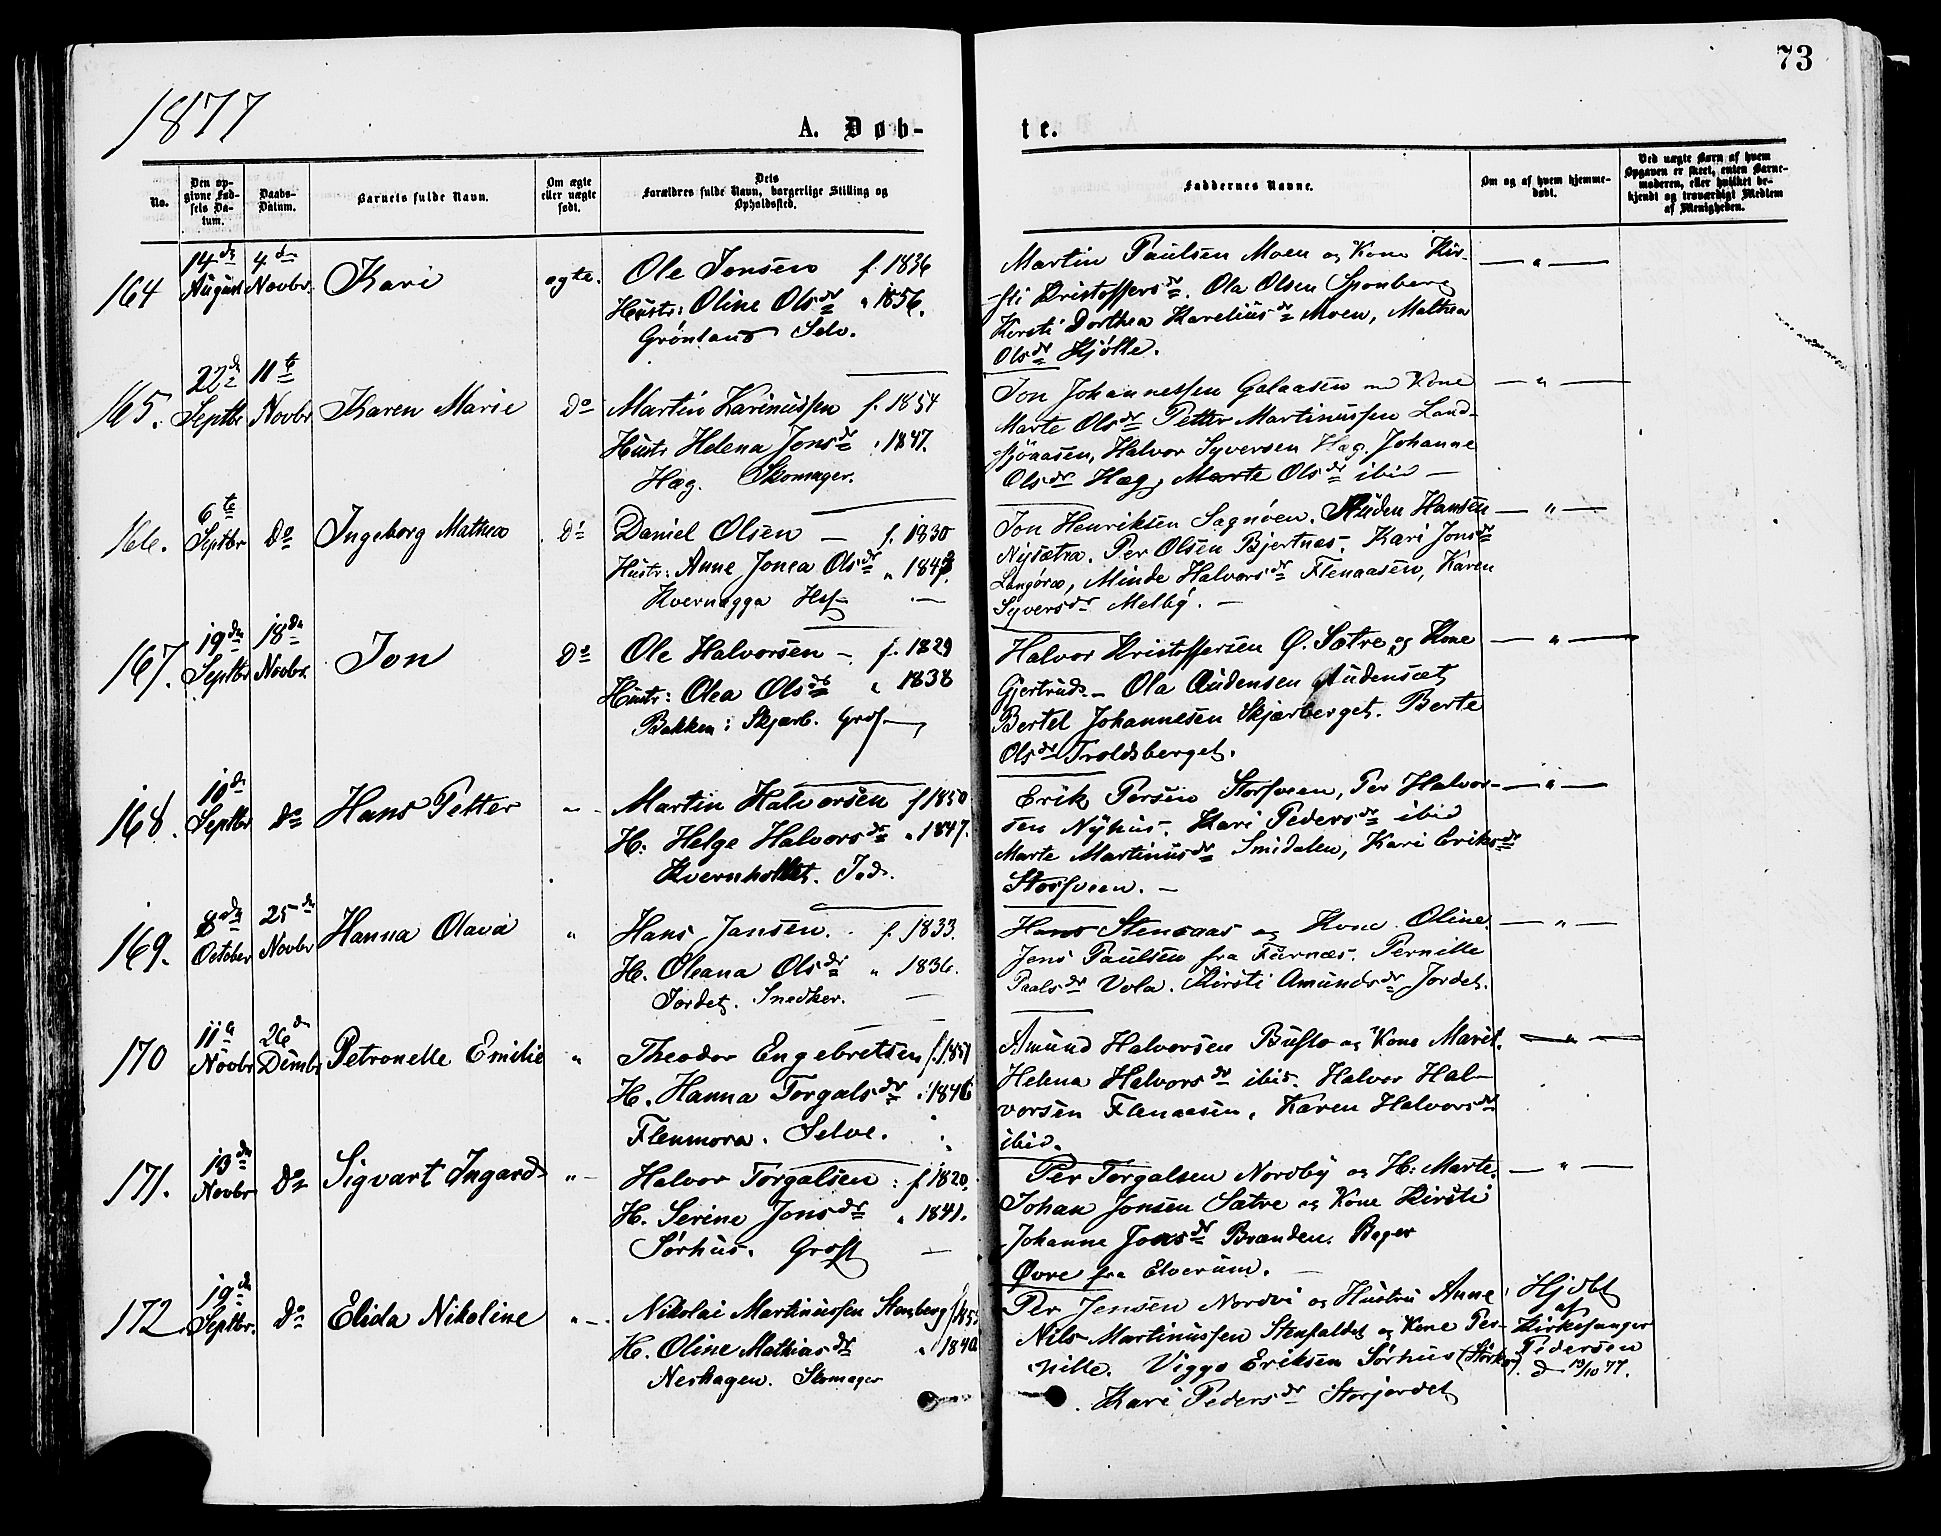 73
1877
A. Døb-
te.
No.
Den op-
givne Fød-
sels Da-
tum.
Daabs-
Datum.
Barnets fulde Navn.
Om ægte
eller uægte
født.
Dets
Forældres fulde Navn, borgerlige Stilling og
Opholdssted.
Faddernes Navne.
Om og af hvem hjemme-
døbt.
Ved uægte Børn af hvem
Opgaven er skeet, enten Barne-
moderen, eller hvilket be-
kjendt og troværdigt Medlem
af Menigheden.
164 14de August 4de Novbr. Kari ægte. Ole Jonsen f. 1836
Hustr: Oline Olsdr " 1856.
Grønland Selv.
Martin Paulsen Moen og Kone Kir-
sti Kristoffersdr. Ola Olsen Sponberg
Kersti Dorthea Kareliusdr Moen, Mathea
Olsdr Kjølle.
— " —
165. 22de Septbr 11te Novbr Karen Marie Do Martin Karinussen f. 1854
Hustr Helena Jonsdr " 1847.
Hæg. Skomager.
Jon Johannessen Galaasen og Kone
Marte Olsdr Petter Martinussen Land-
sjöaasen, Halvor Syversen Hæg. Johanne
Olsdr Hæg, Marte Olsdr ibid —
— " —
166. 6te Septbr Do Ingeborg Mathea Do Daniel Olsen — f. 1830
Hustr: Anne Jonea Olsdr "
Kvernegga
Jon Henriksen Sagnoen. Auden Hansen
Nysætra. Per Olsen Bjertnæs. Kari Jonsdr
Langøræ, Minde Halvorsdr Flenaasen, Karen
Syversdr Melby. —
— " —
167. 19de Septbr 18de Novbr. Jon Do Ole Halvorsen — f. 1829
Hustr: Olea Olsdr " 1838
Bakken i Skjærb. Grof—
Halvor Kristoffersen Ø. Sætre og Kone
Gjertrud. — Ola Audensen Audensæt
Bertel Johannesen Skjærberget. Berte
Olsdr Troldsberget.
— " —
168. 10de Septbr Do Hans Petter " Martin Halvorsen f 1850
H: Helge Halvorsdr " 1847.
Kvernholtet. Ind.
Erik Persen Storsveen, Per Halvor-
sen Nyhus. Kari Pedersdr ibid
Marte Martinusdr Smidalen, Kari Eriksdr
Storsveen. —
— " —
169. 8de October 25de Novbr Hanna Olava " Hans Jansen. f. 1833.
H. Oleana Olsdr " 1836.
Jordet. Snedker. —
Hans Stensaas og Kone Oline.
Jens Paulsen fra Furnæs. Pernille
Paalsdr Vola. Kirsti Amundsdr Jordet.
— " —
170 11te Novbr 26de Dcmbr Petronelle Emilie " Theodor Engebretsen f. 1851
H. Hanna Torgalsdr " 1846
Flenmora. Selve.
Amund Halvorsen Buflo og Kone Marit.
Helena Halvorsdr ibid. Halvor Hal-
vorsen Flenaasen, Karen Halvorsdr
ibid.
— " —
171. 13de Novbr Do Sigvart Ingard " Halvor Torgalsen : f 1820.
H. Serine Jonsdr " 1841.
Sørhus. Grosf —
Per Torgalsen Nordby og H: Marte.
Johan Jonsen Sætre og Kone Kirsti
Johanne Jonsdr Brænden. Bager
Øvre fra Elverum. —
— " —
172. 19de Septbr. Do Elida Nikoline " Nikolai Martinussen Stenberg f 1853
H. Oline Mathiasdr " 1840
Neshagen. Skomager
Per Jensen Nordvi og Hustru Anne
Nils Martinussen Stenfaldet og Kone Per-
nille. Viggo Eriksen Sørhus
Kari Pedersdr Storjordet
Hjdbt
af
Kirkesanger
Pedersen
d 19/10 77.